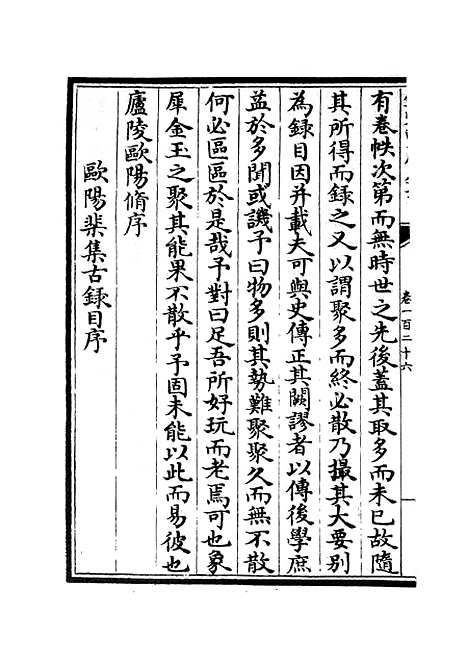 卷一百二十六
有卷帙次第而無時世之先後蓋其取多而未已故隨
其所得而録之又以謂聚多而終必散乃撮其大要别
為録目因并載夫可與史傳正其闕謬者以傳後學庶
益於多聞或譏予曰物多則其勢難聚聚久而無不散
何必區區於是哉予對曰足吾所好玩而老焉可也象
犀金玉之聚其能果不散乎予固未能以此而易彼也
廬陵歐陽脩序
歐陽棐集古錄目序